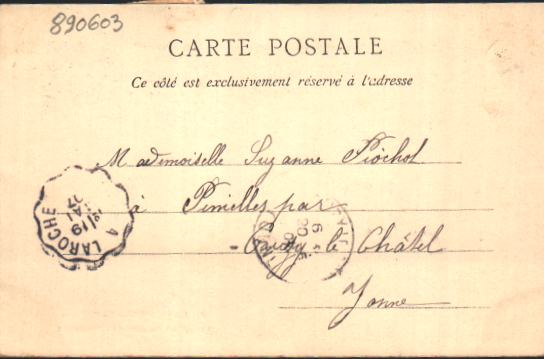 890603
CARTE POSTALE
Ce côté est exclusivement réservé à l'adresse
Mademoiselle Suzanne Piochot
à Pimelles par
- Cruzy le Châtel
Yonne
A LAROCHE